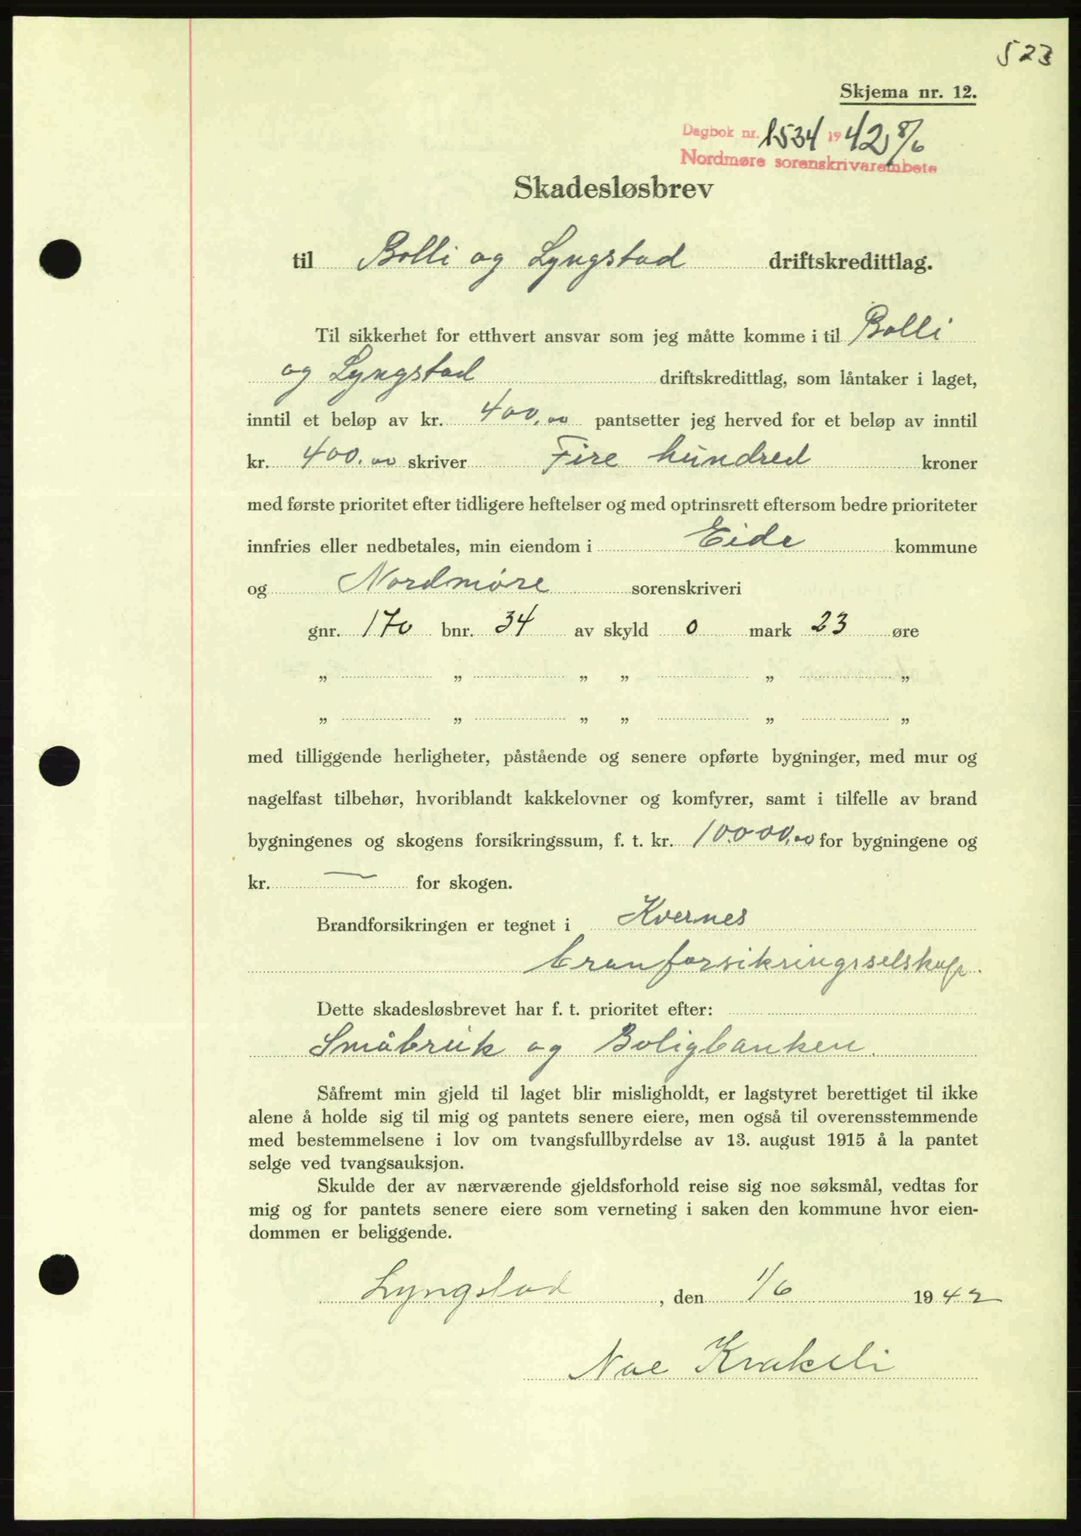 523
Skjema nr. 12.
Dagbok nr. 1534 1942, 8/6
Nordmøre sorenskrivarembete
Skadesløsbrev
til Bolli og Lyngstad driftskredittlag.
Til sikkerhet for etthvert ansvar som jeg måtte komme i til Bolli
og Lyngstad driftskredittlag, som låntaker i laget,
inntil et beløp av kr. 400,00 pantsetter jeg herved for et beløp av inntil
kr. 400,00 skriver Fire hundred kroner
med første prioritet efter tidligere heftelser og med optrinsrett eftersom bedre prioriteter
innfries eller nedbetales, min eiendom i Eide kommune
og Nordmøre sorenskriveri
gnr. 170 bnr. 34 av skyld 0 mark 23 øre
„ „ „ „ „ „
„ „ „ „ „ „
med tilliggende herligheter, påstående og senere opførte bygninger, med mur og
nagelfast tilbehør, hvoriblandt kakkelovner og komfyrer, samt i tilfelle av brand
bygningenes og skogens forsikringssum, f. t. kr. 10.000,00 for bygningene og
kr. — for skogen.
Brandforsikringen er tegnet i Kvernes
branforsikringsselskap.
Dette skadesløsbrevet har f. t. prioritet efter:
Småbruk og Boligbanken.
Såfremt min gjeld til laget blir misligholdt, er lagstyret berettiget til ikke
alene å holde sig til mig og pantets senere eiere, men også til overensstemmende
med bestemmelsene i lov om tvangsfullbyrdelse av 13. august 1915 å la pantet
selge ved tvangsauksjon.
Skulde der av nærværende gjeldsforhold reise sig noe søksmål, vedtas for
mig og for pantets senere eiere som verneting i saken den kommune hvor eien-
dommen er beliggende.
Lyngstad, den 1/6 1942
Noe Krakeli